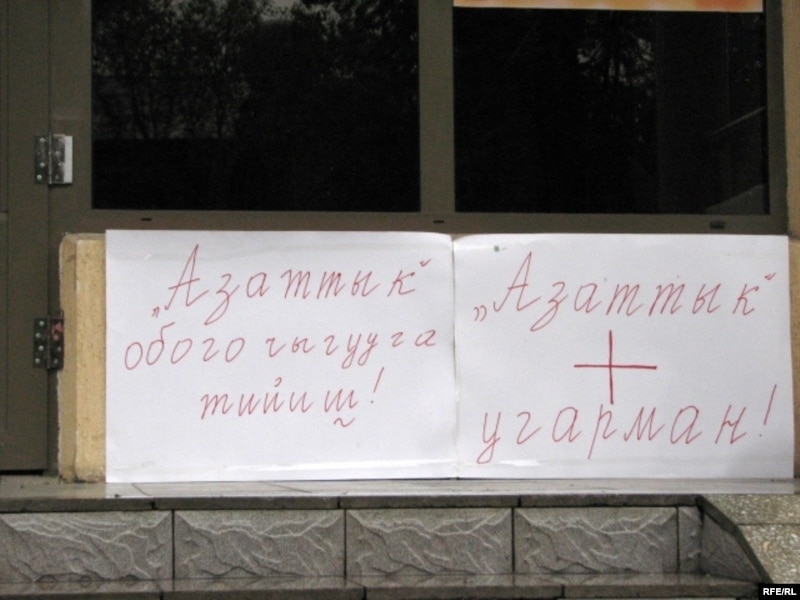 „Азаттык“
обого чыгууга
тийиш!
„Азаттык“
+
угарман!
RFE/RL